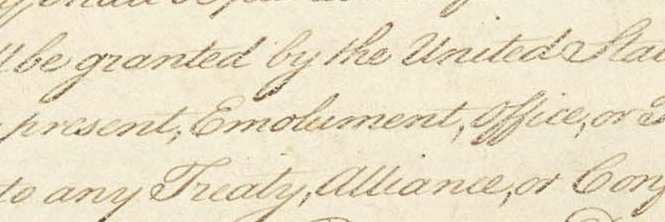 be granted by the United
present, Emolument, Office, or
to any Treaty, Alliance, or